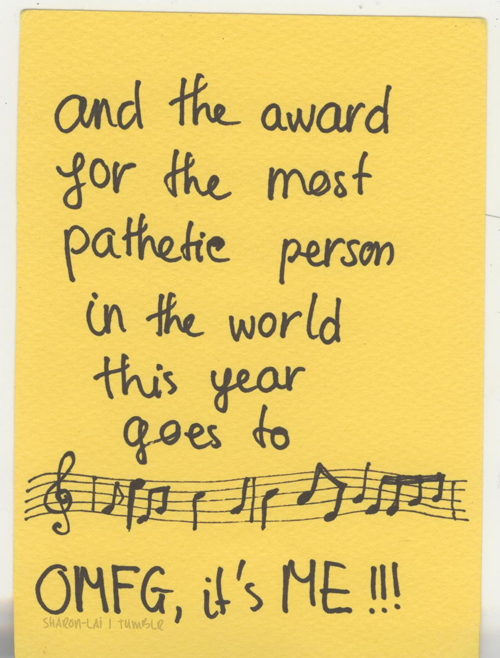 and the award
for the most
pathetic person
in the world
this year
goes to
OMFG, it's ME !!!
SHARON-LAI | TUMBLR